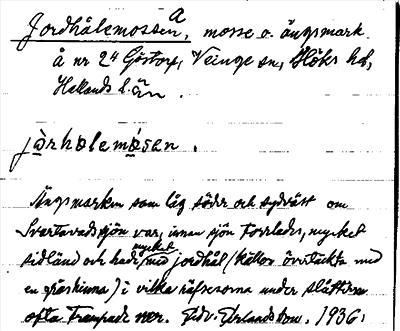 Jordhålemossen, a mosse o. ängsmark
å nr 24 Göstorp, Veinge sn, Höks hd,
Hallands län.
järholemåsen.
Ängsmarken som låg söder och sydväst om
Svartavadsjön var, innan sjön torrlades, mycket
sidländ och hade mycket med jordhål (källor övertäckta med
en gräshinna) i vilka räfsesorna under slåttern
ofta trampade ner. Edv. Erlandsson. 1936.